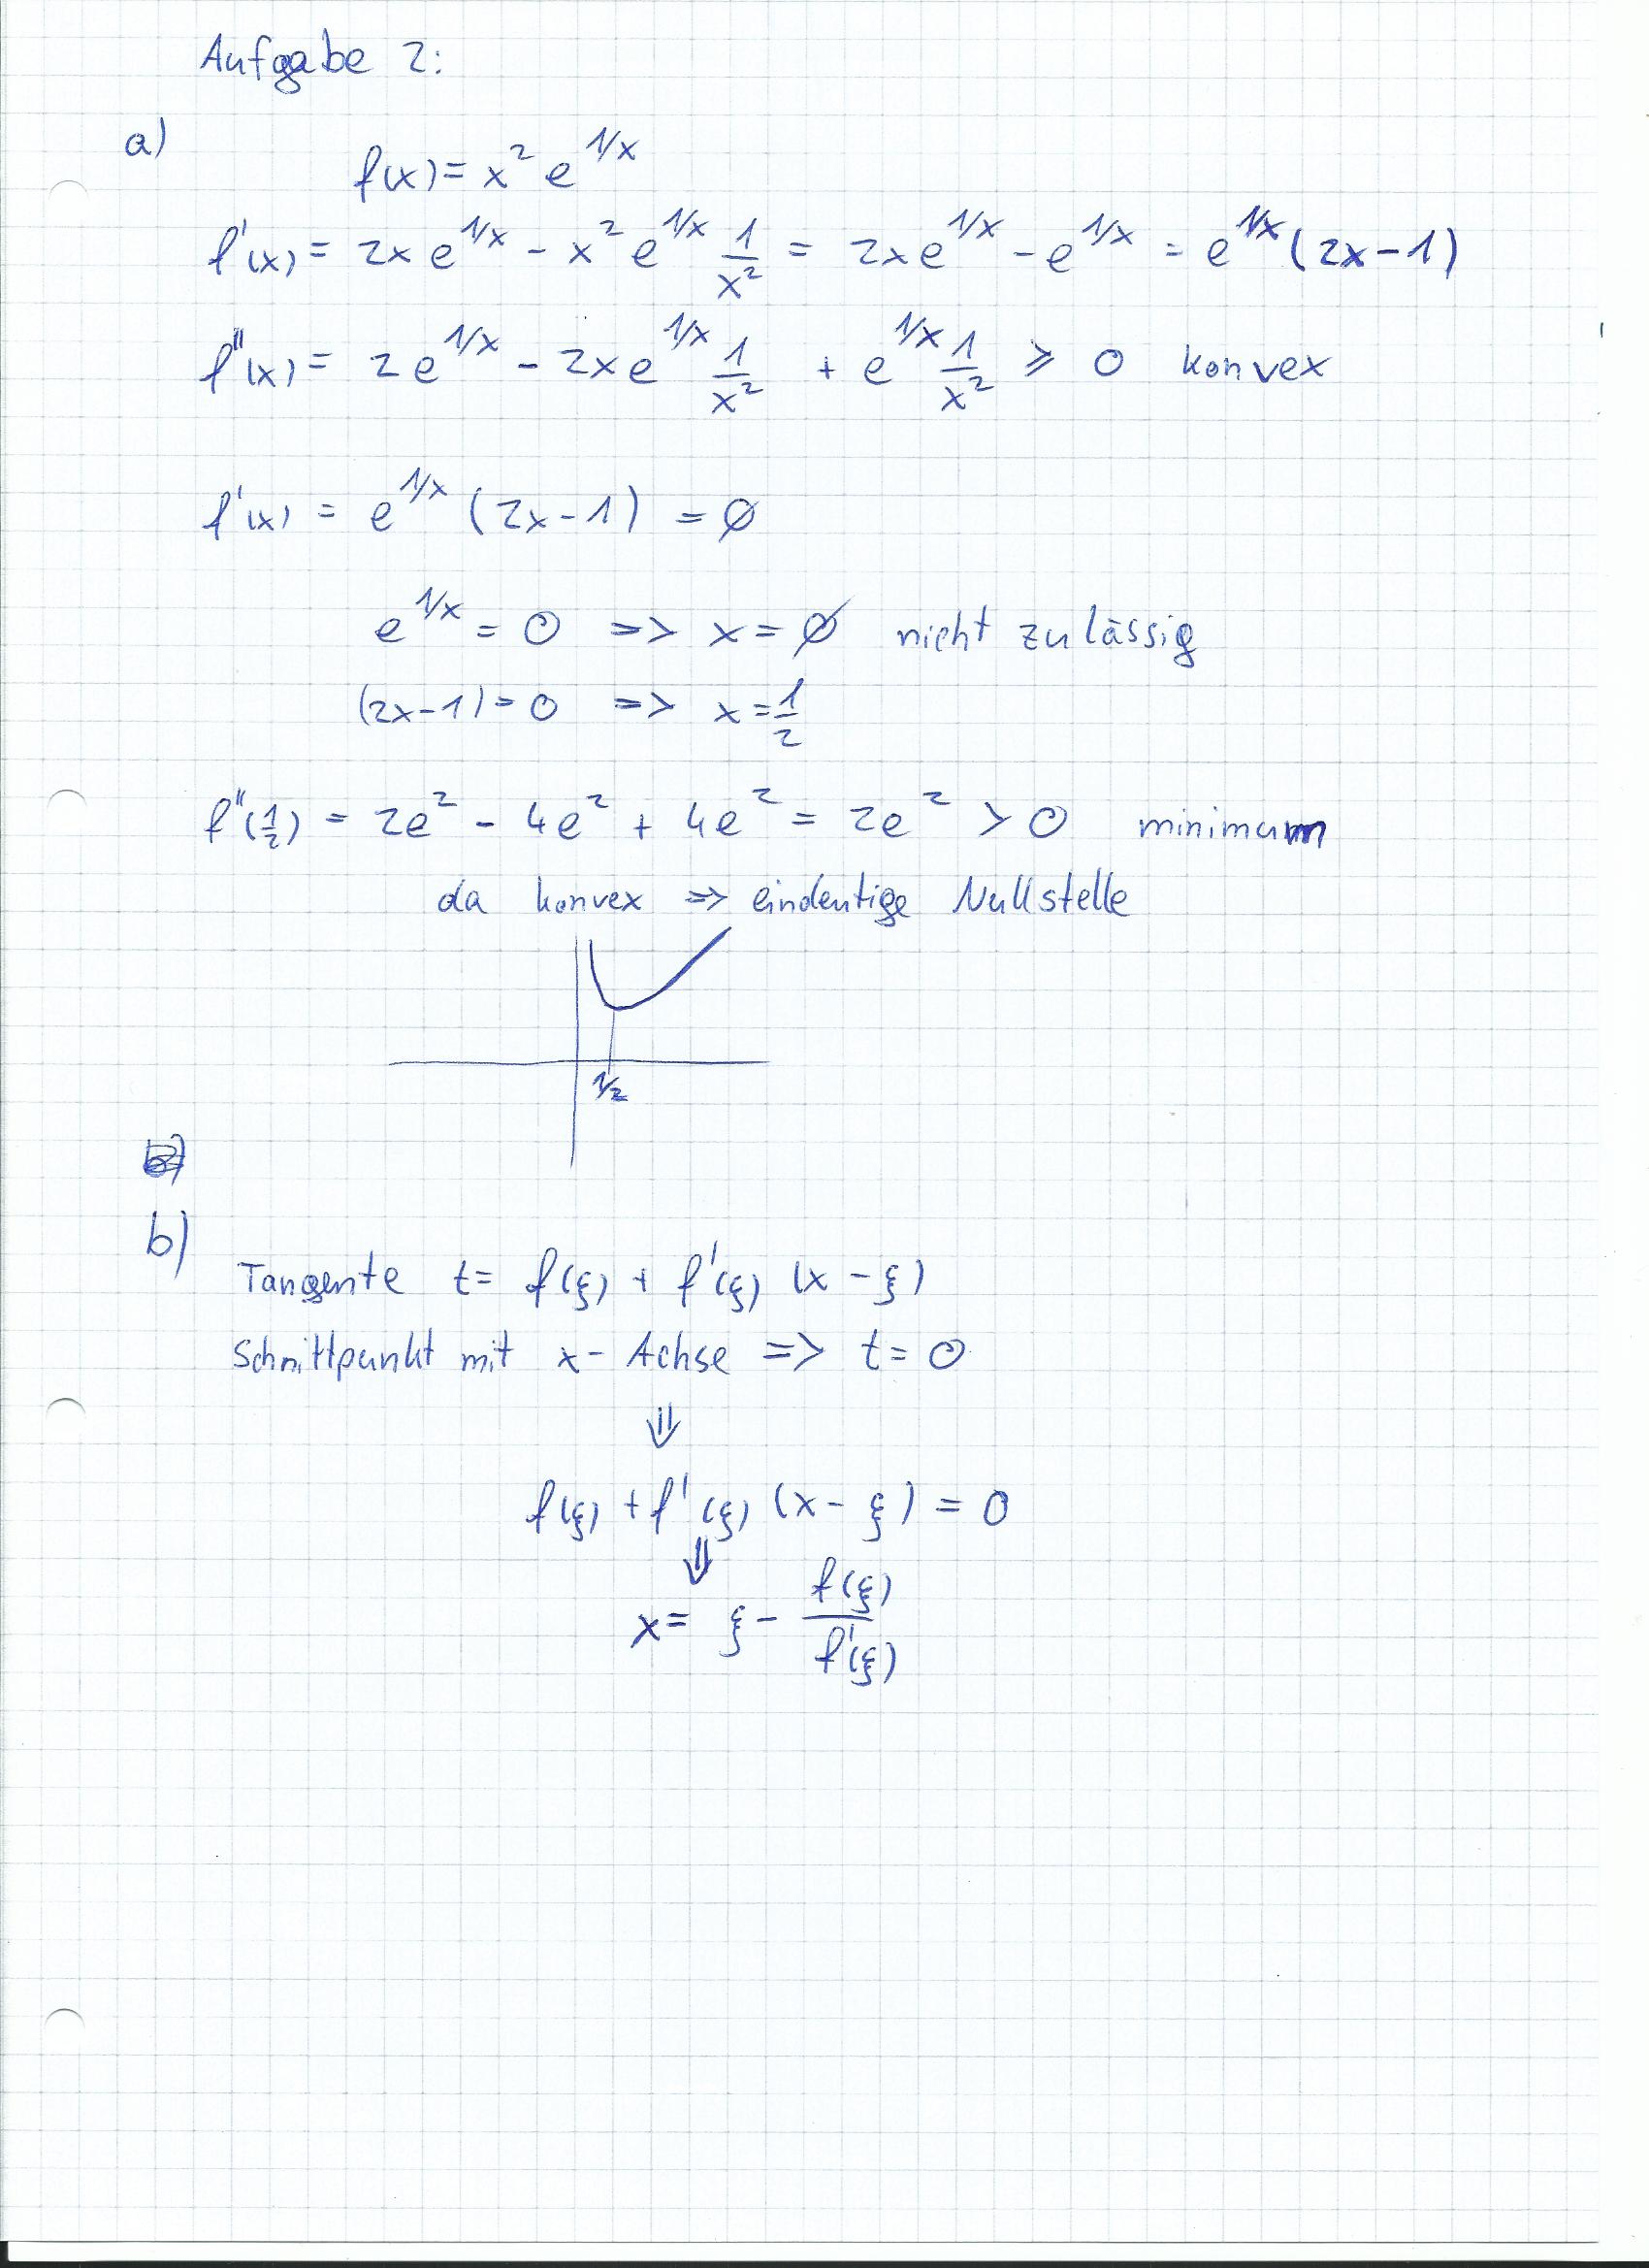 Aufgabe 2:
a)
f(x) = x² e^{1/x}
f'(x) = 2x e^{1/x} - x² e^{1/x} 1/x² = 2x e^{1/x} - e^{1/x} = e^{1/x} (2x-1)
f''(x) = 2 e^{1/x} - 2x e^{1/x} 1/x² + e^{1/x} 1/x² ≥ 0 konvex
f'(x) = e^{1/x} (2x-1) = ∅
e^{1/x} = 0 => x = ∅ nicht zulässig
(2x-1) = 0 => x = 1/2
f''(1/2) = 2e² - 4e² + 4e² = 2e² > 0 minimum
da konvex => eindeutige Nullstelle
1/2
b)
Tangente t = f(ξ) + f'(ξ) (x - ξ)
Schnittpunkt mit x-Achse => t = 0
⇓
f(ξ) + f'(ξ) (x - ξ) = 0
⇓
x = ξ - f(ξ)/f'(ξ)